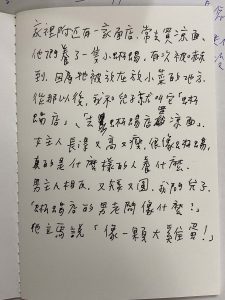 家裡附近有一家商店,常去買涼麵、
他們養了一隻小蜥蜴,有次被嚇
到,因為牠被放在放小菜的地方
從那以後,我和兒子就叫它「蜥
蜴店」、「去蜥蜴店買涼麵」。
女主人長得又高又瘦,很像蜥蜴,
真的是什麼樣的人養什麼。
男主人相反,又矮又圓,我問兒子,
「蜥蜴店的男老闆像什麼?」
他立馬說「像一顆大蛋!」